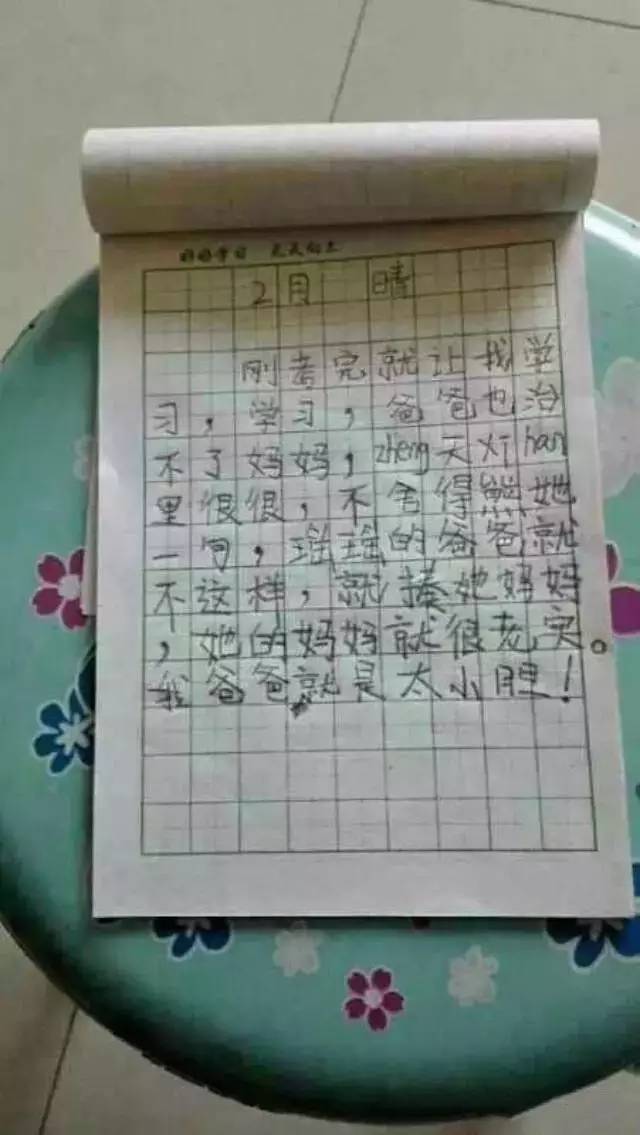 好好学习 天天向上
2月 晴
刚考完就让我学
习，学习，爸爸也治
不了妈妈，zheng天xihan
里很很，不舍得熊她
一句，瑶瑶的爸爸就
不这样，就揍她妈妈
，她的妈妈就很老实。
我爸爸就是太小胆！